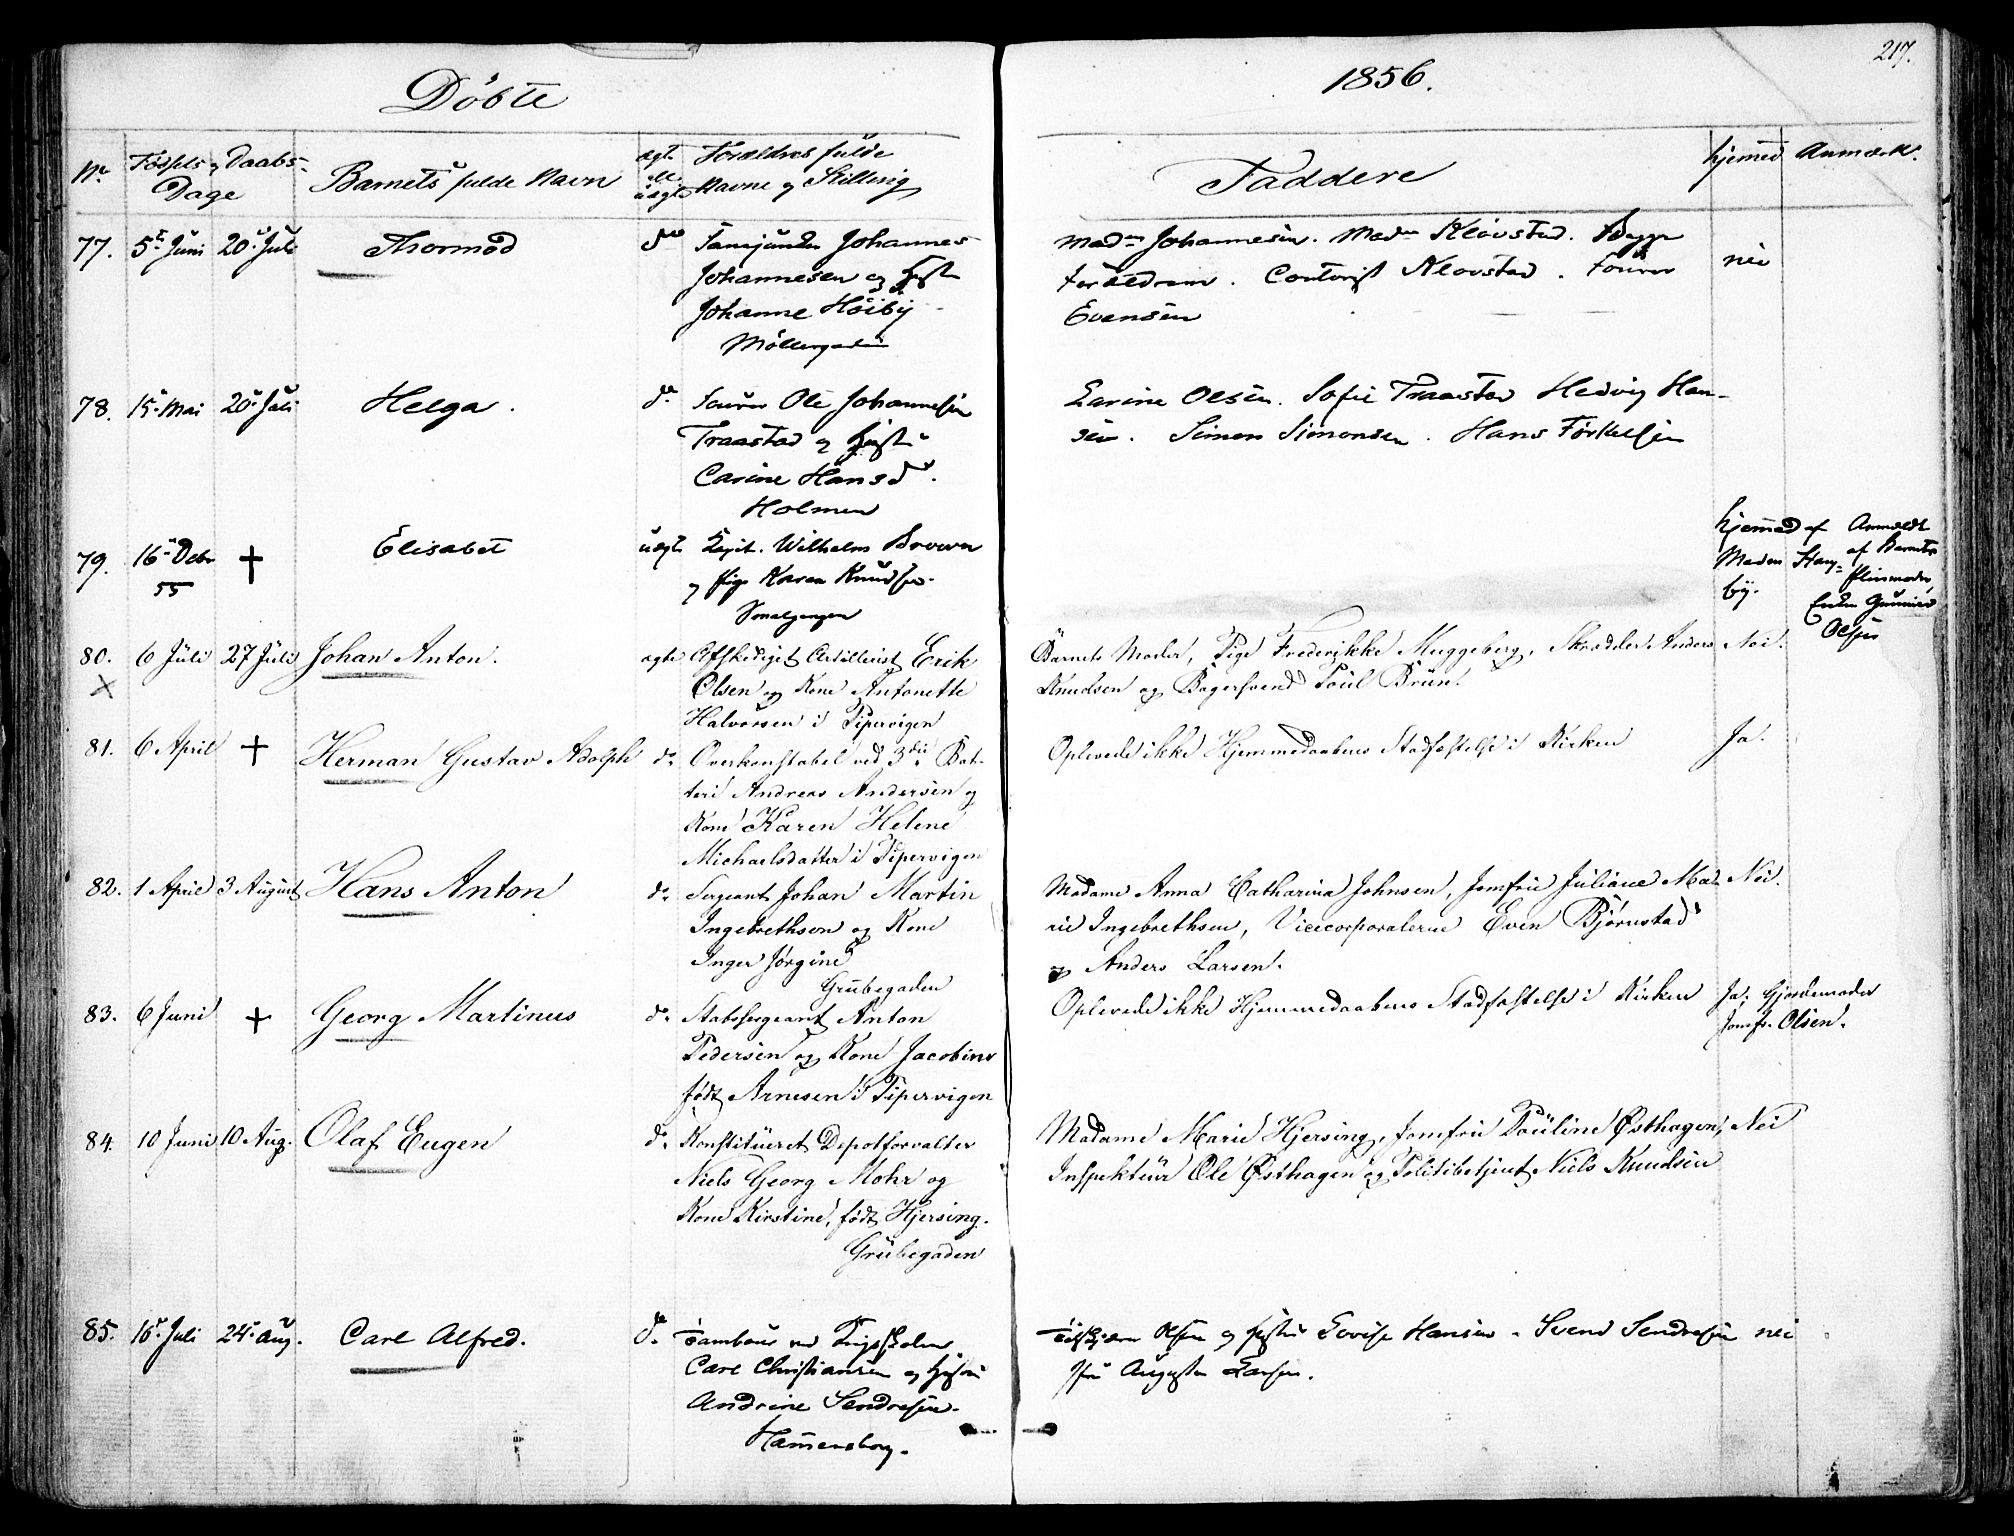 217.
Døbte
1856.
No
Fødsels og Daabs-
Dage
Barnets fulde Navn
ægte
ell.
uægte
Forældres fulde
Navne og Stilling
Faddere
hjemmed
Anmærk.
77.
5t Juni
20 Juli
Thormod
do
Johannes
Johannesen og Hust
Johanne Höiby
Möllergaden
Madm Johannesen. Madm Klövstad. Begge
Forældrene. Contorist Klovstad.
Evensen
nei
78.
15 Mai
20 Juli
Helga.
do
Ole Johannesen
Traastad og Hust
Carine Hansd.
Holmen
Karine Olsen. Sofie Traastad Hedvig Han-
sen. Simen Simonsen. Hans Torkelsen
79.
16 Debr
55
†
Elisabet
uægte
Wilhelm
og Pige Karen Knuds
Smalgangen
hjemmed af
Maden Hau-
by.
Anmeldt
af Barnets
Pleiemoder
Enke Gunnild
Olsen
80.
6 Juli
27 Juli
Johan Anton.
ægte
Afskediget Artillerist Erik
Olsen og Kone Antonette
Halvorsen i Pipervigen
Barnets Moder, Pige Frederikke Muggeberg, Skrædder Anders
Knudsen og Bagersvend Poul Brun.
Nei.
81.
6 April
†
Herman Gustav Adolph
do
Overkonstabel ved 3die Bat-
teri Andreas Andersen og
Kone Karen Helene
Michaelsdatter i Pipervigen
Oplevede ikke Hjemmedaabens Stadfæstelse i Kirken
Ja.
82.
1 April
3 August
Hans Anton
do
Sergeant Johan Martin
Ingebrethsen og Kone
Inger Jørgine
Grubegaden
Madame Anna Catharina Johnsen, Jomfru Juliane Ma-
rie Ingebrethsen, Vicecorporalerne Even Bjørnstad
og Anders Larsen.
Nei.
83.
6 Juni
†
Georg Martinus
do
Stabssergeant Anton
Pedersen og Kone Jacobine
født Arnesen i Pipervigen
Oplevede ikke Hjemmedaabens Stadfæstelse i Kirken
Ja; Gjordemoder
Jomfr. Olsen.
84.
10 Juni
10 Aug.
Olaf Eugen
do
Konstitueret Depotforvalter
Niels Georg Mohr og
Kone Kirstine, født Hjersing.
Grubegaden
Madame Marie Hjersing, Jomfru Pouline Østhagen,
Inspekteur Ole Østhagen og Politibetjent Niels Knudsen
Nei
85.
16 Juli
24 Aug.
Carl Alfred.
do
Tambour ved Krigsskolen
Carl Christiansen og Hustru
Andrine Sendresen.
Hammersborg.
Olsen og Hustru Lovise Hansen. Svend Sendresen
Augusta Larsen.
nei